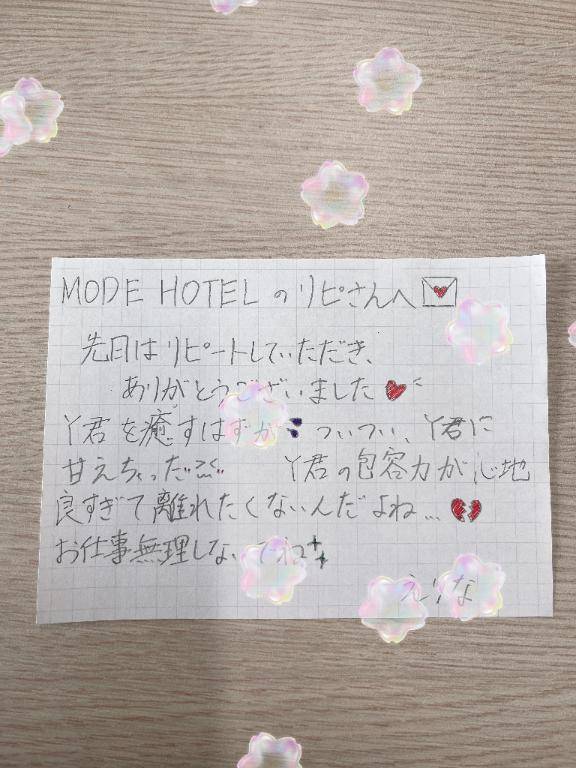 MODE HOTELのリピさんへ
先日はリピートしていただき、
ありがとうございました
Y君を癒すはずが ついつい、Y君に
甘えちゃった Y君の包容力が心地
良すぎて離れたくないんだよね…
お仕事無理しないでね
えりな